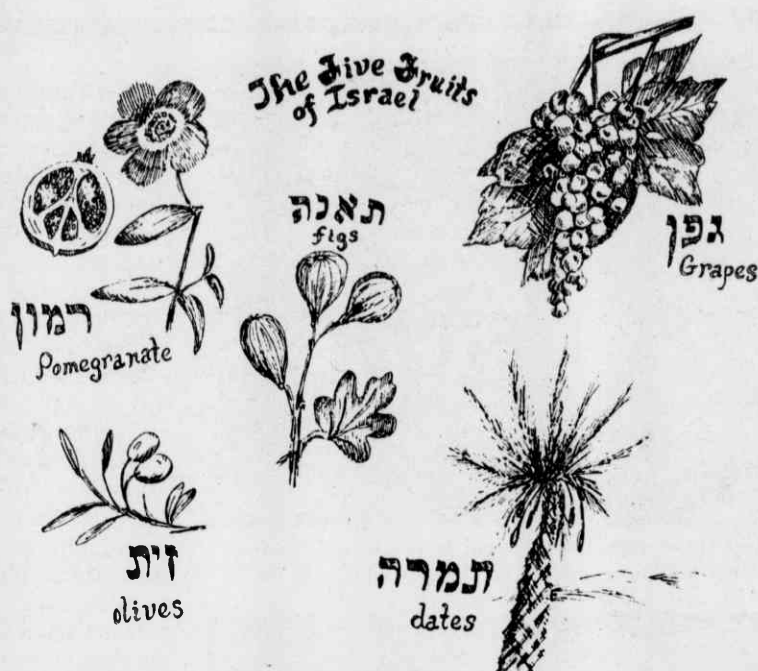 The Five Fruits
of Israel
רמון
Pomegranate
תאנה
figs
גפן
Grapes
זית
olives
תמרה
dates